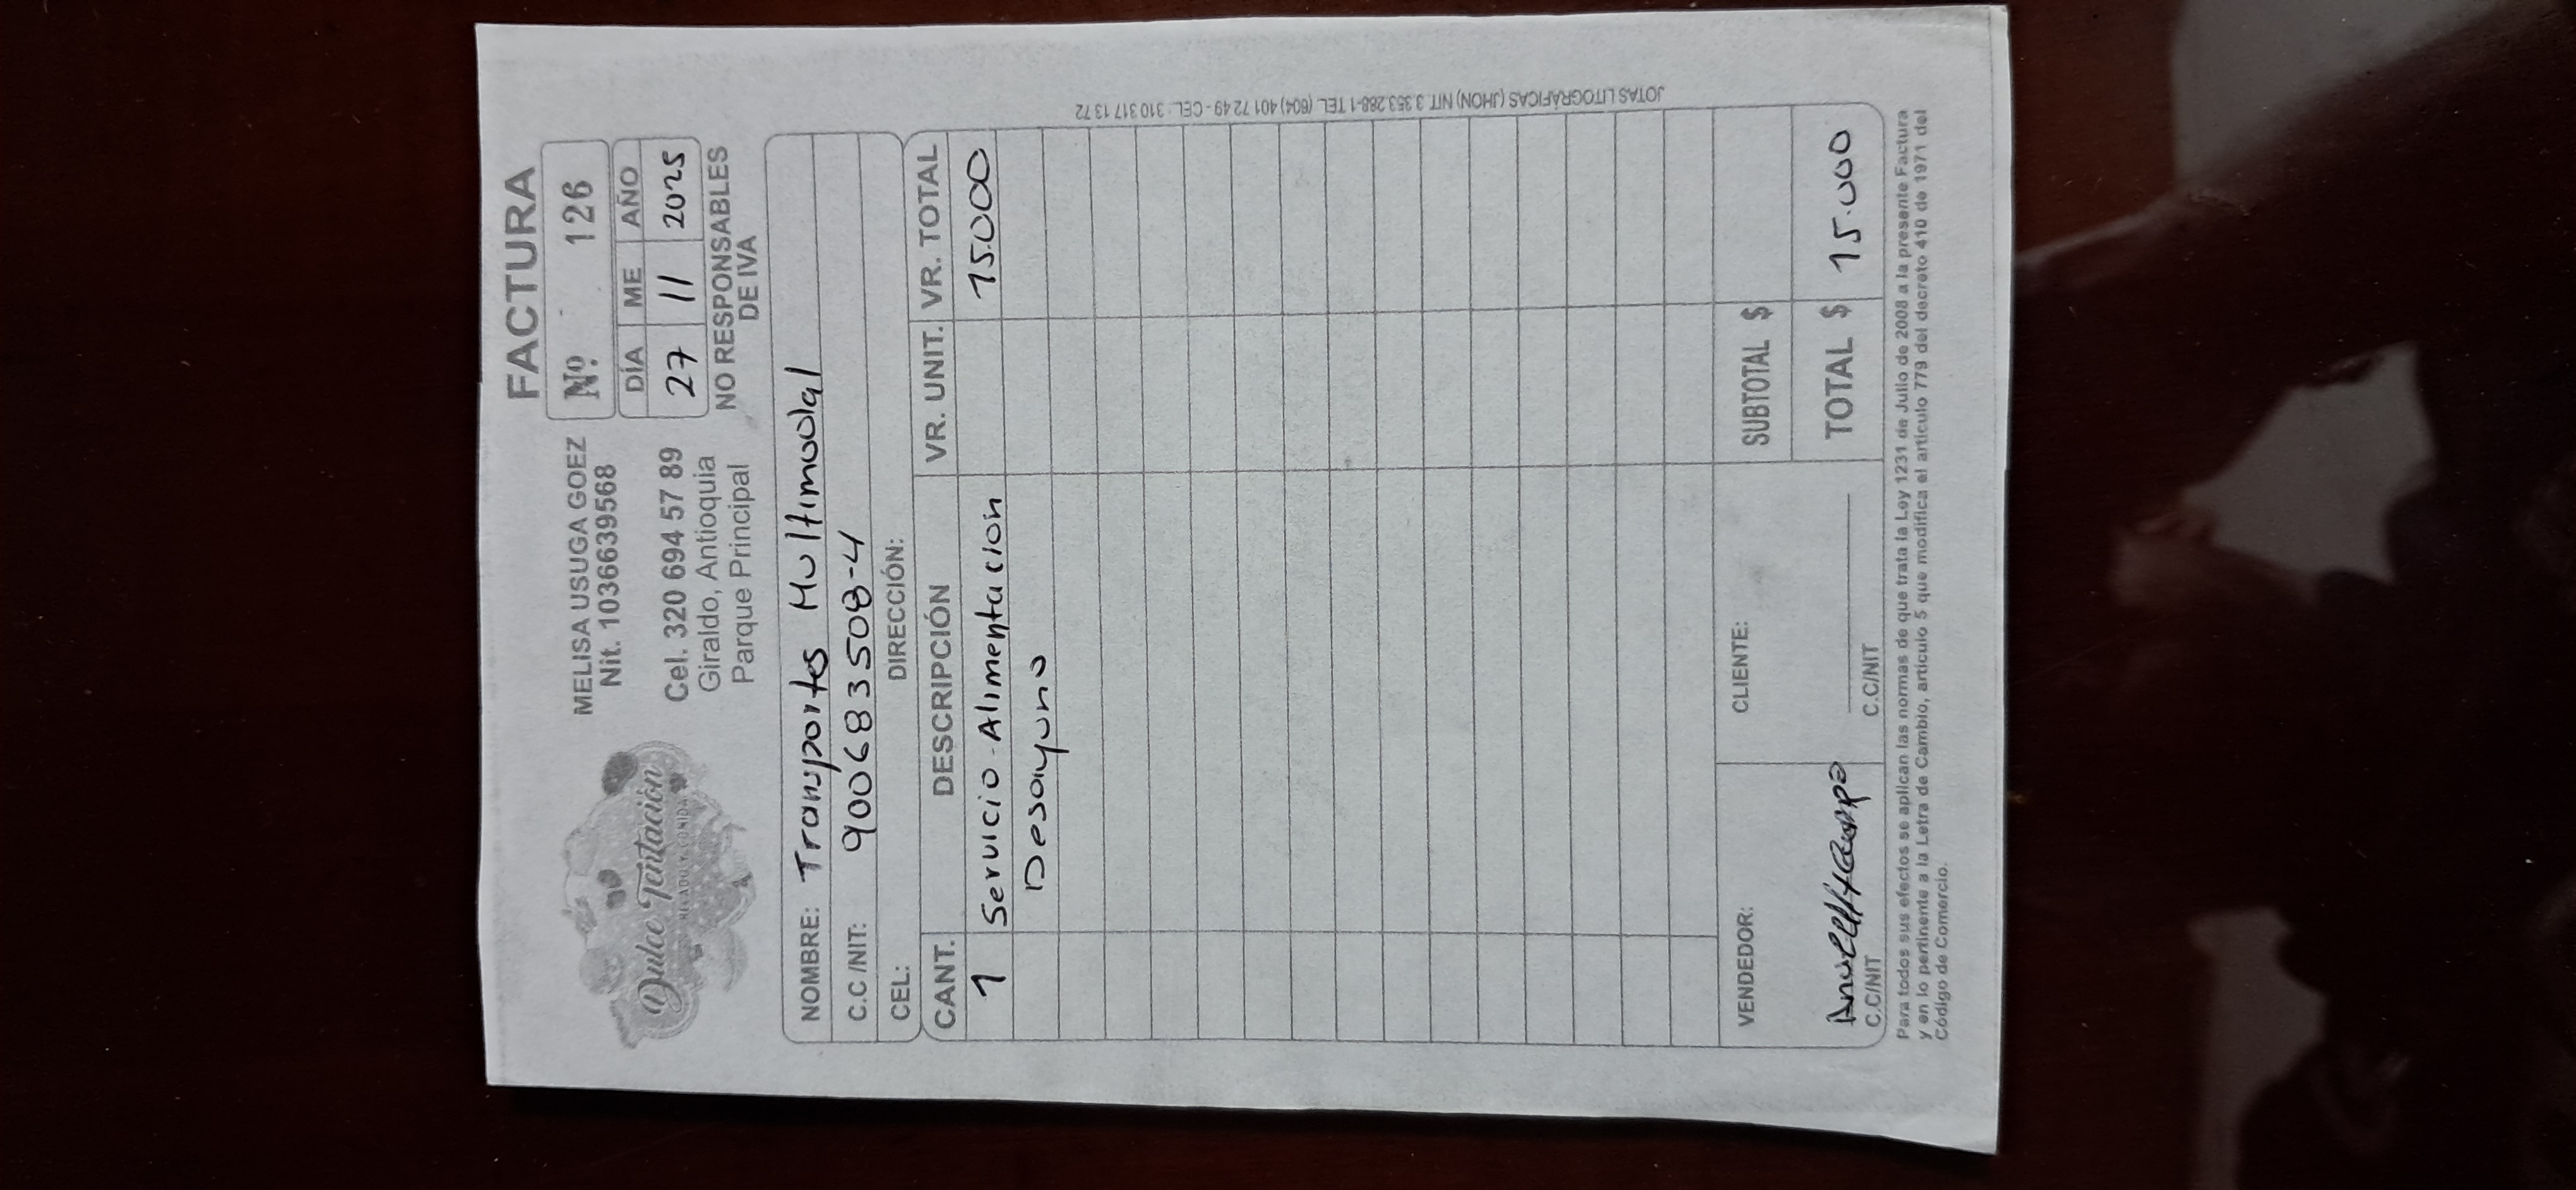 Dulce Tentación
HELADO Y COMIDA
MELISA USUGA GOEZ
Nit. 1036639568
Cel. 320 694 57 89
Giraldo, Antioquia
Parque Principal
FACTURA
Nº. 126
DÍA ME AÑO
27 11 2025
NO RESPONSABLES
DE IVA
NOMBRE: Transportes Multimodal
C.C /NIT: 900683508-4
CEL: DIRECCIÓN:
CANT. DESCRIPCIÓN VR. UNIT. VR. TOTAL
1 Servicio Alimentacion 15.000
Desayuno
VENDEDOR: CLIENTE: SUBTOTAL $
TOTAL $ 15.000
C.C/NIT C.C/NIT
Para todos sus efectos se aplican las normas de que trata la Ley 1231 de Julio de 2008 a la presente Factura
y en lo pertinente a la Letra de Cambio, artículo 5 que modifica el artículo 779 del decreto 410 de 1971 del
Código de Comercio.
JOTAS LITOGRÁFICAS (JHON) NIT. 3.353.288-1 TEL. (604) 401 72 49 - CEL. 310 317 13 72